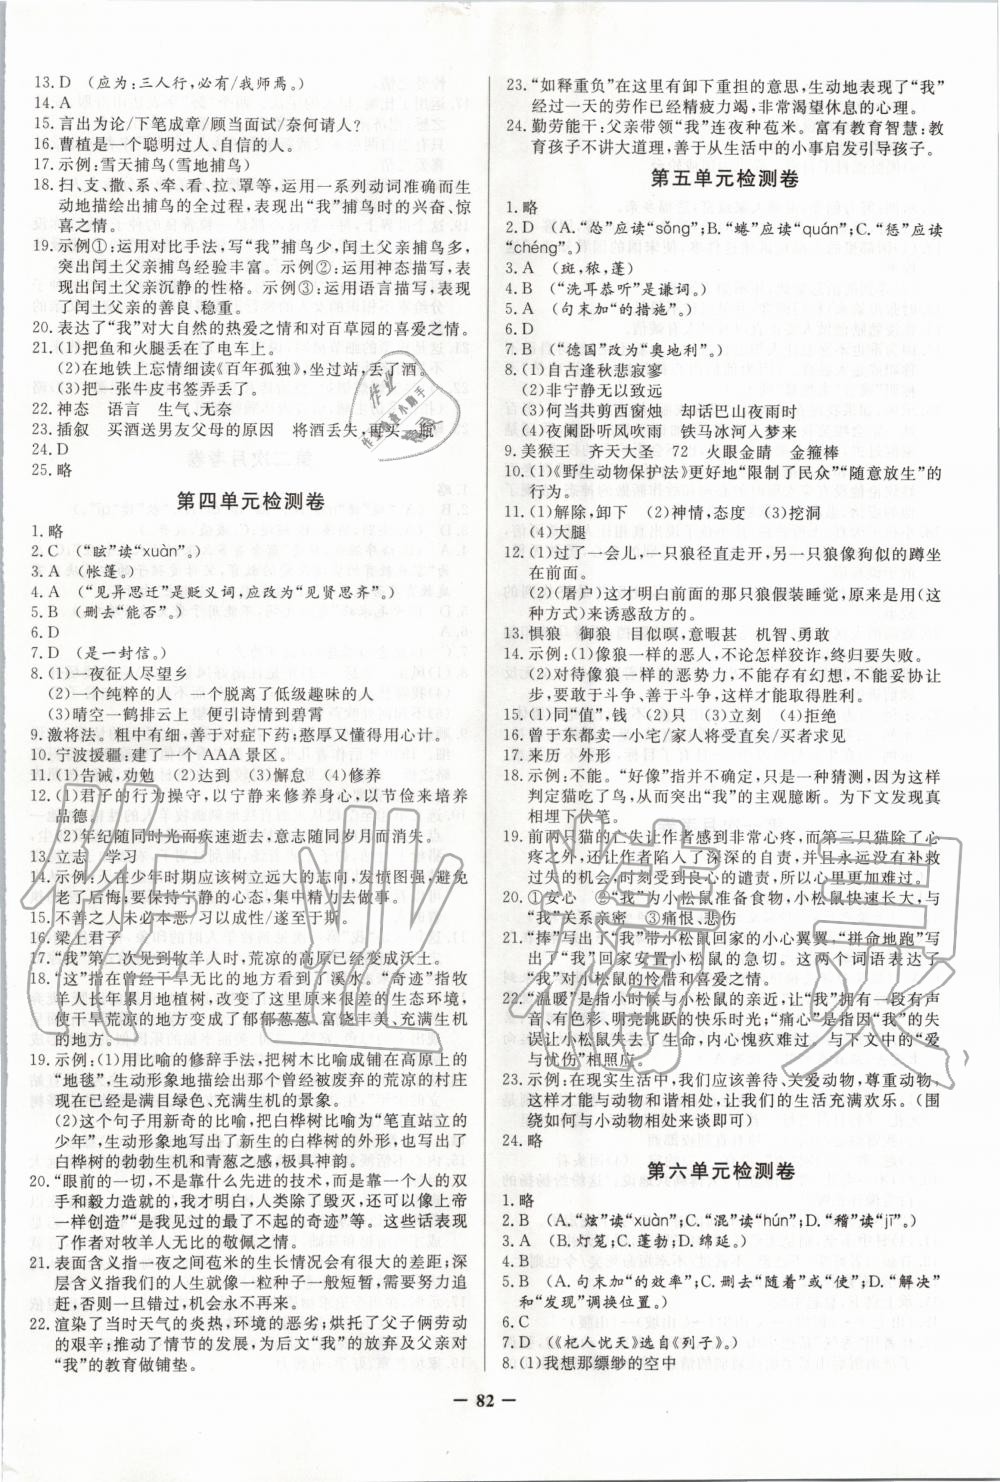 13. D　(应为:三人行,必有/我师焉。)
14. A
15. 言出为论/下笔成章/顾当面试/奈何请人?
16. 曹植是一个聪明过人、自信的人。
17. 示例:雪天捕鸟(雪地捕鸟)
18. 扫、支、撒、系、牵、看、拉、罩等,运用一系列动词准确而生
动地描绘出捕鸟的全过程,表现出“我”捕鸟时的兴奋、惊
喜之情。
19. 示例①:运用对比手法,写“我”捕鸟少,闰土父亲捕鸟多,
突出闰土父亲捕鸟经验丰富。示例②:运用神态描写,表
现出闰土父亲沉静的性格。示例③:运用语言描写,表现
了闰土父亲的善良、稳重。
20. 表达了“我”对大自然的热爱之情和对百草园的喜爱之情。
21. (1)把鱼和火腿丢在了电车上。
(2)在地铁上忘情细读《百年孤独》,坐过站,丢了酒。
(3)把一张牛皮书签弄丢了。
22. 神态　语言　生气、无奈
23. 插叙　买酒送男友父母的原因　将酒丢失,再买一瓶
24. D
25. 略
第四单元检测卷
1. 略
2. C　(“眩”读“xuàn”。)
3. A　(帐篷。)
4. A　(“见异思迁”是贬义词,应改为“见贤思齐”。)
5. B　(删去“能否”。)
6. D
7. D　(是一封信。)
8. (1)一夜征人尽望乡
(2)一个纯粹的人　一个脱离了低级趣味的人
(3)晴空一鹤排云上　便引诗情到碧霄
9. 激将法。粗中有细,善于对症下药;憨厚又懂得用心计。
10. 宁波援疆:建了一个AAA景区。
11. (1)告诫,劝勉　(2)达到　(3)懈怠　(4)修养
12. (1)君子的行为操守,以宁静来修养身心,以节俭来培养
品德。
(2)年纪随同时光而疾速逝去,意志随同岁月而消失。
13. 立志　学习
14. 示例:人在少年时期应该树立远大的志向,发愤图强,避免
老了后悔;要保持宁静的心态,集中精力去做事。
15. 不善之人未必本恶/习以成性/遂至于斯。
16. 梁上君子
17. “我”第二次见到牧羊人时,荒凉的高原已经变成沃土。
18. “这”指在曾经干旱无比的地方看到了溪水。“奇迹”指牧
羊人长年累月地植树,改变了这里原有的生态环境,
使干旱荒凉的地方变成了郁郁葱葱、富饶丰美、充满生机
的地方。
19. 示例:(1)用比喻的修辞手法,把树木比喻成铺在高原上的
“地毯”,生动形象地描绘出那个曾经被废弃的荒凉的村庄
现在已经是满目绿色、充满生机的景象。
(2)这个句子用新奇的比喻,把白桦树比喻为“笔直站立的
少年”,生动形象地写出了新生的白桦树的外形,也写出了
白桦树的勃勃生机和青葱之感,极具神韵。
20. “眼前的一切,不是靠什么先进的技术,而是靠一个人的双
手和毅力造就的,我才明白,人类除了毁灭,还可以像上帝
一样创造”“这是我见过的最了不起的奇迹”等。这些话表现
了作者对牧羊人无比的敬佩之情。
21. 表面含义指一夜之间苞米的生长情况会有很大的差距;深
层含义指我们的人生就像一粒种子一般慢慢生长,要努力追
赶,否则一旦错过,机会永不再来。
22. 渲染了当时天气的炎热,环境的恶劣;烘托了父子俩劳动
的艰辛;推动了情节的发展,为后文“我”的放弃及父亲对
“我”的教育做铺垫。
23. “如释重负”在这里有卸下重担的意思,生动地表现了“我”
经过一天的劳作已经精疲力竭,非常渴望休息的心理。
24. 勤劳能干:父亲带领“我”连夜种苞米。富有教育智慧:教
育孩子不讲大道理,善于从生活中的小事启发引导孩子。
第五单元检测卷
1. 略
2. D　(A.“怂”应读“sǒng”;B.“蜷”应读“quán”;C.“惩”应读
“chéng”。)
3. A　(斑,秾,蓬)
4. B　(“洗耳恭听”是谦词。)
5. A　(句末加“的措施”。)
6. D
7. B　(“德国”改为“奥地利”。)
8. (1)自古逢秋悲寂寥
(2)非宁静无以致远
(3)何当共剪西窗烛　却话巴山夜雨时
(4)夜阑卧听风吹雨　铁马冰河入梦来
9. 美猴王　齐天大圣　72　火眼金睛　金箍棒
10. (1)《野生动物保护法》更好地“限制了民众”“随意放生”的
行为。
11. (1)解除,卸下　(2)神情,态度　(3)挖洞
(4)大腿
12. (1)过了一会儿,一只狼径直走开,另一只狼像狗似的蹲坐
在前面。
(2)(屠户)这才明白前面的那只狼假装睡觉,原来是用(这
种方式)来诱惑敌方的。
13. 惧狼　御狼　目似瞑,意暇甚　机智、勇敢
14. 示例:(1)像狼一样的恶人,不论怎样狡诈,终归要失败。
(2)对待像狼一样的恶势力,不能存有幻想,不能妥协让
步,要敢于斗争、善于斗争,这样才能取得胜利。
15. (1)同“值”,钱　(2)只　(3)立刻　(4)拒绝
16. 曾于东都卖一小宅/家人将受直矣/买者求见
17. 来历　外形
18. 示例:不能。“好像”指并不确定,只是一种猜测,因为这样
判定猫吃了鸟,从而突出“我”的主观臆断。为下文发现真
相埋下伏笔。
19. 前两只猫的亡失让作者感到非常心疼,而第三只猫除了心
疼之外,还让作者陷入了深深的自责,并且永远没有补救
过失的机会,时刻受到良心的谴责,所以心里更加难过。
20. ①安心　②“我”为小松鼠准备食物,小松鼠快速长大,与
“我”关系亲密　③痛恨、悲伤
21. “捧”写出了“我”带小松鼠回家的小心翼翼,“拼命地跑”写
出了“我”回家安置小松鼠的急切。这两个词语表达了
“我”对小松鼠的怜惜和喜爱之情。
22. “温暖”是指小时候与小松鼠的亲近,让“我”拥有一段有声
音、有色彩、明亮跳跃的快乐时光;“痛心”是指因“我”的失
误让小松鼠失去了生命,内心愧疚难过。与下文中的“爱
与忧伤”相照应。
23. 示例:在现实生活中,我们应该善待、关爱动物,尊重动物,
这样才能与动物和谐相处,让我们的生活充满欢乐。(围
绕如何与小动物相处来谈即可)
24. 略
第六单元检测卷
1. 略
2. B　(A.“炫”读“xuàn”;C.“混”读“hún”;D.“稽”读“jī”。)
3. A　(B.灯笼;C.蓬勃;D.绵延。)
4. B
5. B　(A.句末加“的效率”;C.删去“随着”或“使”;D.“解决”
和“发现”调换位置。)
6. C
7. D　(《杞人忧天》选自《列子》。)
8. (1)我想那缥缈的空中
— 82 —